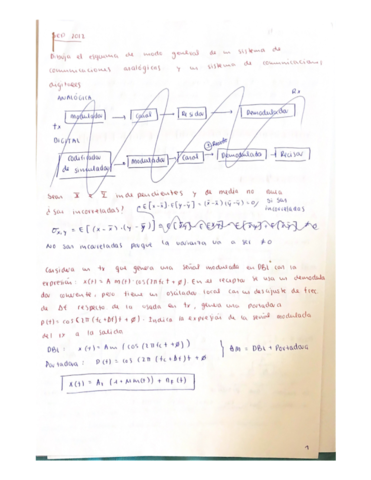 FEB 2013
Dibuja el esquema de modo general de un sistema de
comunicaciones analógicas y un sistema de comunicaciones
digitales
ANALÓGICA
Rx
modulador
canal
Demodulador
tx
DIGITAL
Codificador
modulador
Canal
Demodulador
Sean X e Y independientes y de media no nula
¿son incorreladas?
si son
incorreladas
No son incorreladas porque la varianza va a ser ≠0
Considera un tx que genera una señal modulada en DBL con la
expresión: x(t) = A m(t) cos(2πfct + ø) En el receptor se usa un demodula
dor coherente, pero tiene un oscilador local con un desajuste de frec
de Δf respecto de la usada en tx, genera una portadora
p(t) = cos(2π(fc+Δf)t + ø). Indica la expresión de la señal modulada
del rx a la salida
DBL: x(t) = Am(cos(2πfct + ø)
AM = DBL + Portadora
Portadora: p(t) = cos(2π(fc+Δf)t + ø
1